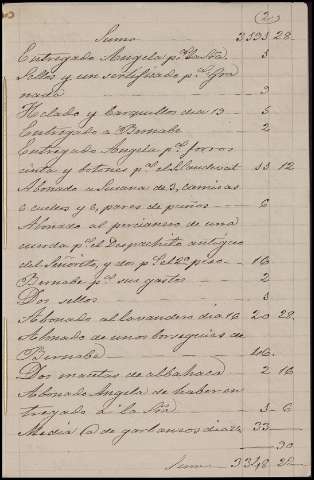 (2)
Suma 2593 28
Entregado Angela pª la Sra 3
Sellos y un sertificado pª Gra
nada 9
Helado y barquillos dia 13 5
Entregado a Bernabe 2
Entregado Angela pª forros
cinta y botones pª el 13 12
Abonado a Susana de 3, camisas
6 cuellos y 6, pares de puños 6
Abonado al percianero de una
cuerda pª el Despachito antiguo
del Señorito, y dos pª el 2º piso 16
Bernabe pª sus gastos 2
Dos sellos 3
Abonado al lavandero dia 16 20 28
Abonado de unos borseguies de
Bernabe 46
Dos matitas de albahaca 2 16
Abonado Angela de haber en
tregado á la Sra 3 6
Media @ de garbanzos 33
30
Suma 3348 22